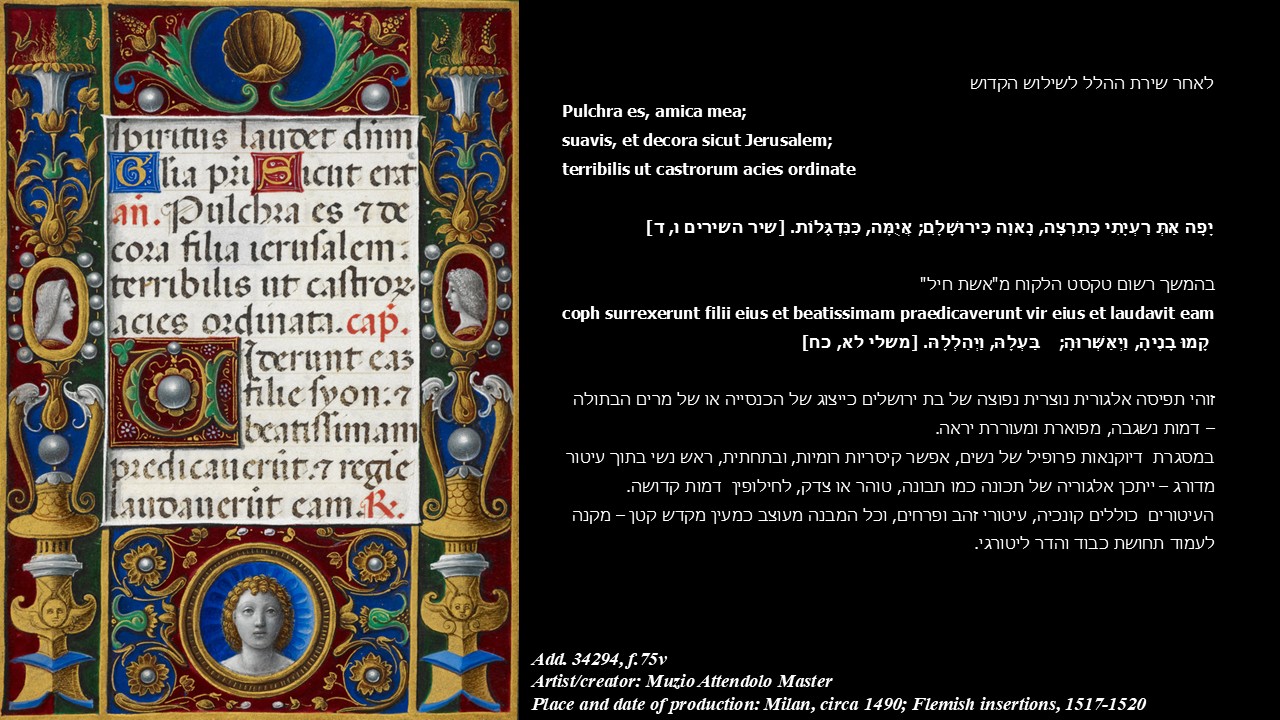 spiritus laudet dnm
Glia pri Sicut erat
an. Pulchra es ⁊ de
cora filia ierusalem:
terribilis ut castroꝝ
acies ordinata. cap.
Uiderunt eaz
filie syon: ⁊
beatissimam
predicauerut. ⁊ regie
laudauerut eam. R.
לאחר שירת ההלל לשילוש הקדוש
Pulchra es, amica mea;
suavis, et decora sicut Jerusalem;
terribilis ut castrorum acies ordinate
יָפָה אַתְּ רַעְיָתִי כְּתִרְצָה, נָאוָה כִּירוּשָׁלִָם; אֲיֻמָּה, כַּנִּדְגָּלוֹת. [שיר השירים ו, ד]
בהמשך רשום טקסט הלקוח מ"אשת חיל"
coph surrexerunt filii eius et beatissimam praedicaverunt vir eius et laudavit eam
קָמוּ בָנֶיהָ, וַיְאַשְּׁרוּהָ; בַּעְלָהּ, וַיְהַלְלָהּ. [משלי לא, כח]
זוהי תפיסה אלגורית נוצרית נפוצה של בת ירושלים כייצוג של הכנסייה או של מרים הבתולה
– דמות נשגבה, מפוארת ומעוררת יראה.
במסגרת דיוקנאות פרופיל של נשים, אפשר קיסריות רומיות, ובתחתית, ראש נשי בתוך עיטור
מדורג – ייתכן אלגוריה של תכונה כמו תבונה, טוהר או צדק, לחילופין דמות קדושה.
העיטורים כוללים קונכיה, עיטורי זהב ופרחים, וכל המבנה מעוצב כמעין מקדש קטן – מקנה
לעמוד תחושת כבוד והדר ליטורגי.
Add. 34294, f.75v
Artist/creator: Muzio Attendolo Master
Place and date of production: Milan, circa 1490; Flemish insertions, 1517-1520